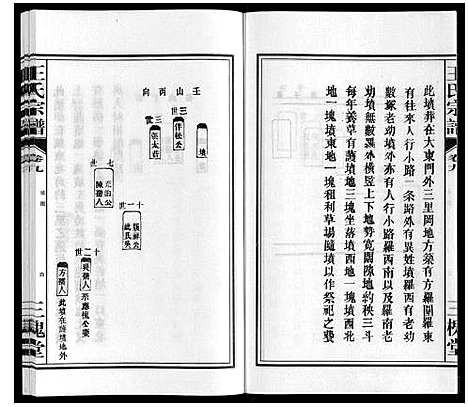 王氏宗譜
卷九
三槐堂
此墳葬在大東門外三里岡地方築有方羅圍羅東
有往來人行小路一條路外有異姓墳羅西南以及羅前
數塚老幼墳外有人行小路羅西以南以
幼墳無數羅外橫竪上下勢寬闊隙地約秧三斗
每年蓄草有護墳地三塊坐落墳西地一塊墳西北
地一塊墳東地一塊租利草場隨墳以作祭祀之費
壬山丙向
墳
三世
仲松公
三世
張太莊
七世
元治公
陳孺人
十一世
十二世
吳孺人
示應槐公妻
方孺人
此墳在護墳地外
王氏宗譜
卷九
墳圖
三槐堂